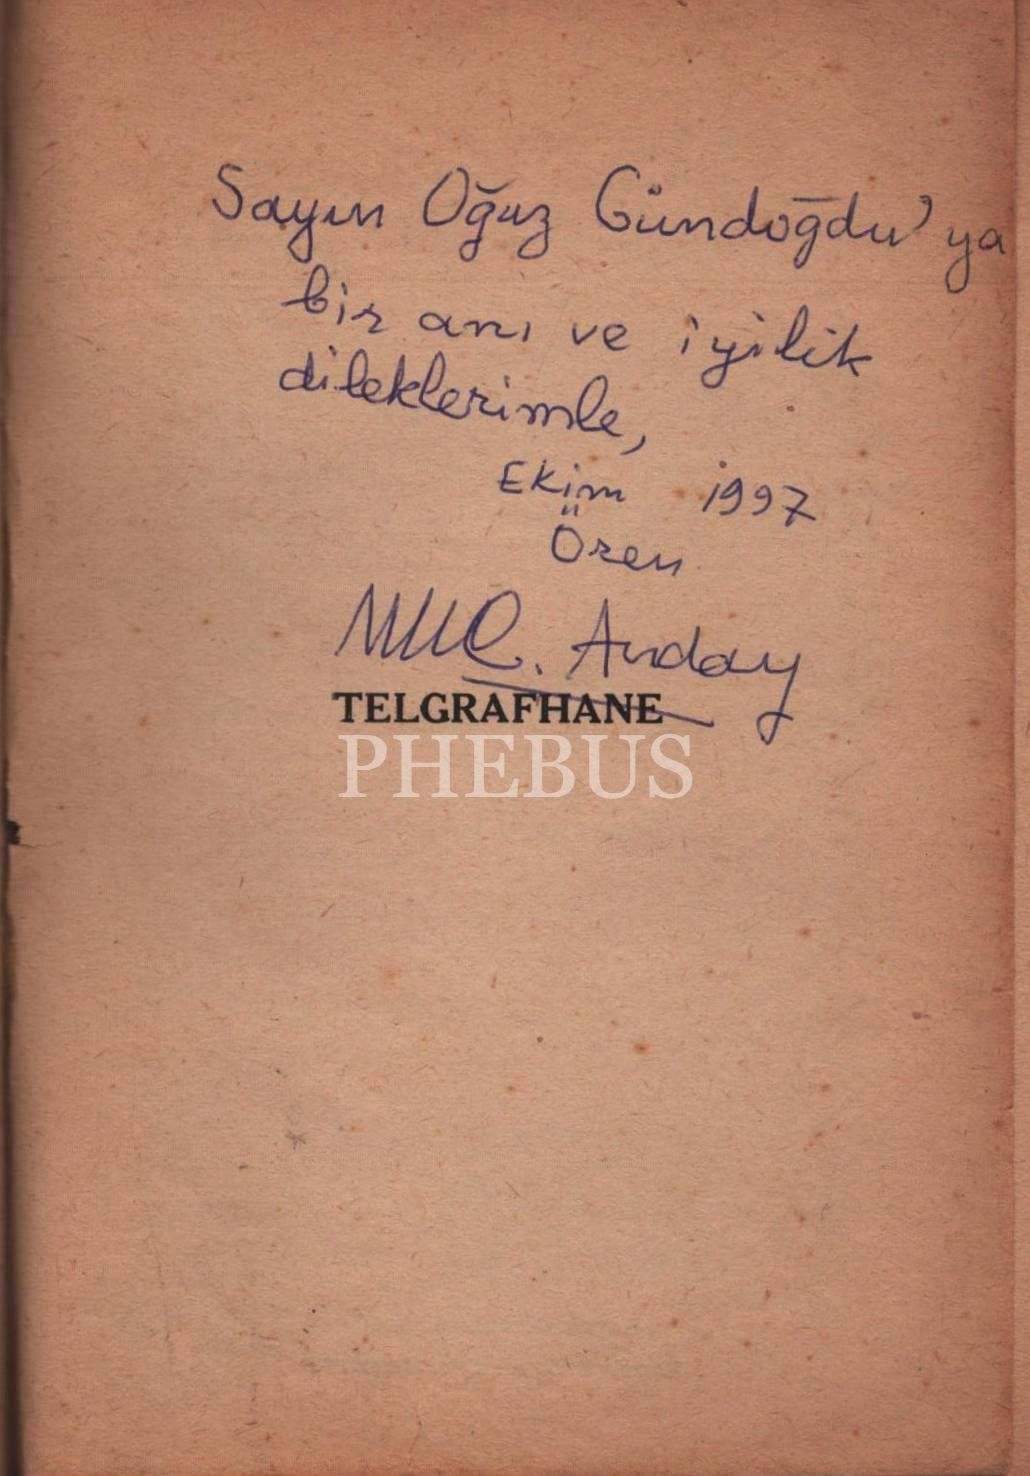 Sayın Oğuz Gündoğdu'ya
bir anı ve iyilik
dileklerimle,
Ekim 1997
Ören
M.C. Anday
TELGRAFHANE
PHEBUS